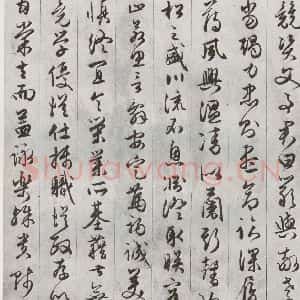 競資父事君曰嚴與敬孝
當竭力忠則盡命臨深履
薄夙興溫凊似蘭斯馨如
松之盛川流不息淵澄取映容
止若思言辭安定篤初誠美
慎終宜令榮業所基籍甚無
竟學優登仕攝職從政存以
甘棠去而益詠樂殊貴賤
Shufawang.CN